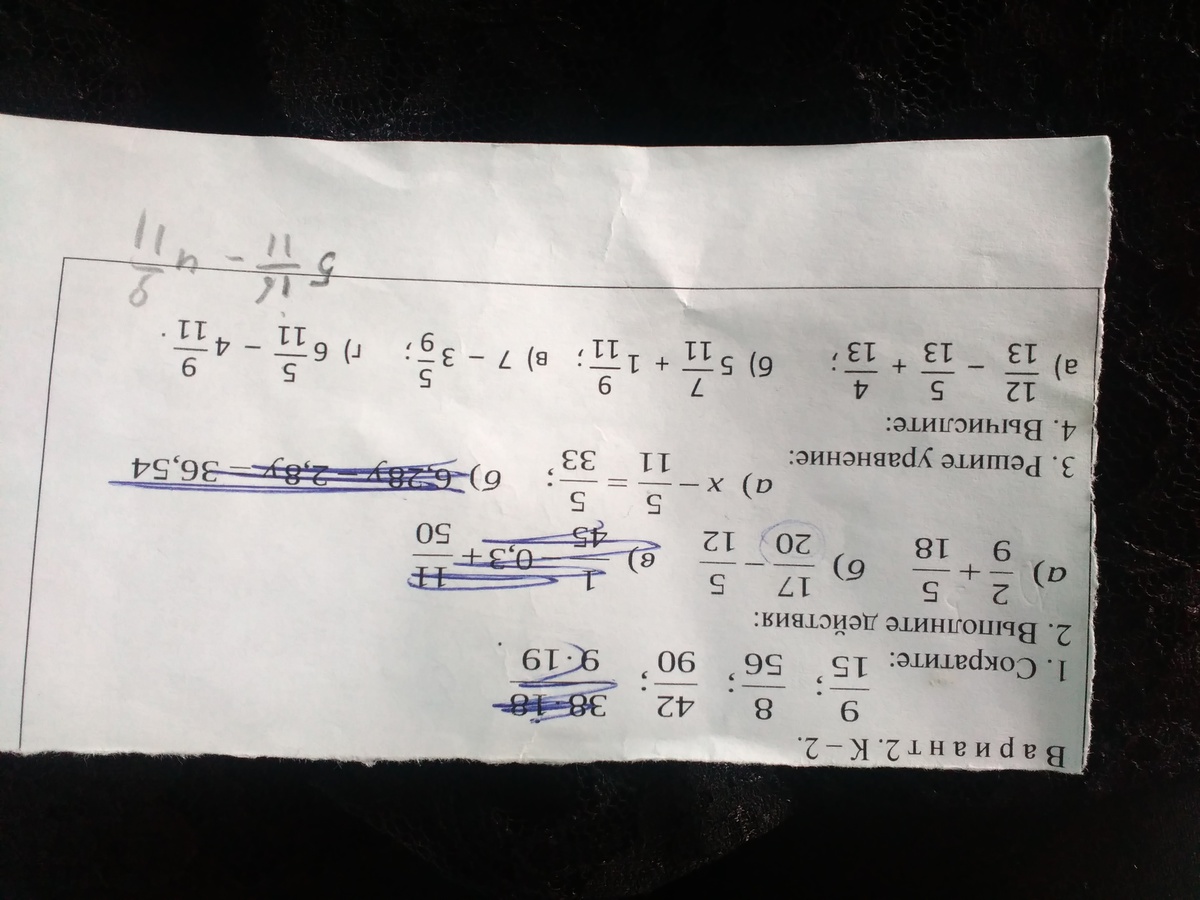 Вариант 2. К – 2.
1. Сократите: 9/15; 8/56; 42/90; 38·18/9·19.
2. Выполните действия:
а) 2/9 + 5/18 б) 17/20 − 5/12 в) 1/45 − 0,3 + 11/50
3. Решите уравнение:
а) x − 5/11 = 5/33; б) 6,28y − 2,8y − 36,54
4. Вычислите:
а) 12/13 − 5/13 + 4/13; б) 5 7/11 + 1 9/11; в) 7 − 3 5/9; г) 6 5/11 − 4 9/11.
5 16/11 − 4 9/11